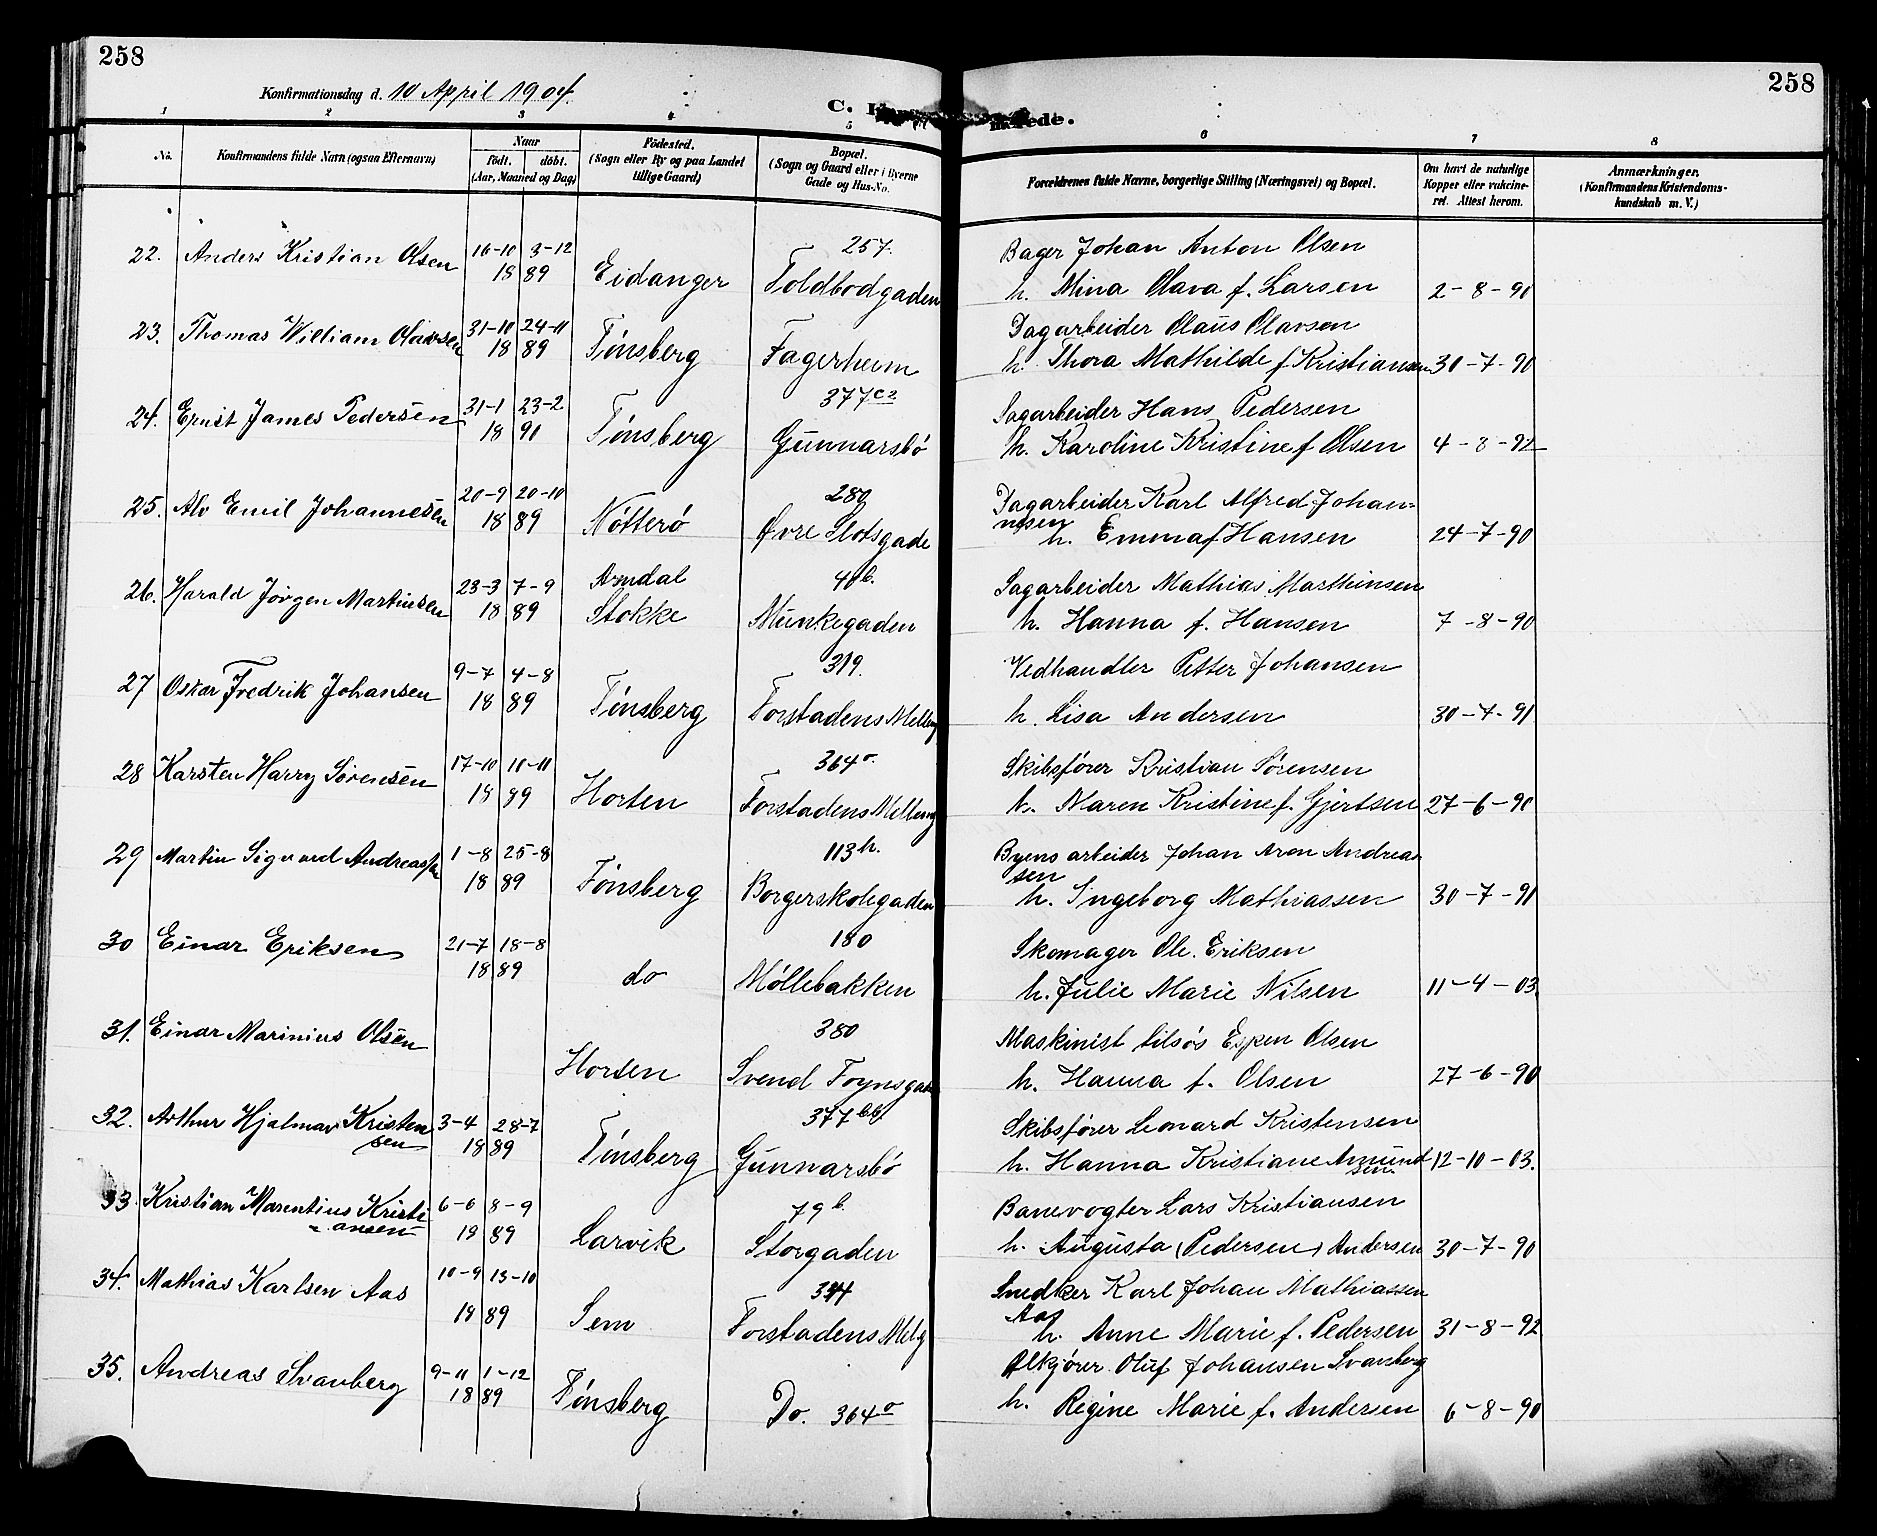 258
258
Konfirmationsdag d. 10 April 1904.
C.
1 2 3 4 5 6 7 8
No. Konfirmandens fulde Navn (ogsaa Efternavn) Naar födt. döbt. (Aar, Maaned og Dag) Födested. (Sogn eller By og paa Landet tillige Gaard) Bopæl. (Sogn og Gaard eller i Byerne Gade og Hus-No. Forældrenes fulde Navne, borgerlige Stilling (Næringsvei) og Bopæl. Om havt de naturlige Kopper eller vakcineret. Attest herom. Anmærkninger. (Konfirmandens Kristendomskundskab m. V.)
22. Anders Kristian Olsen 16-10 3-12 257. Bager Johan Anton Olsen
18 89 Eidanger Toldbodgaden h. Mina Olava f. Larsen 2-8-90
23. Thomas William Olavsen 31-10 24-11 Dagarbeider Olaus Olavsen
18 89 Tönsberg Fagerheim h. Thora Mathilde f. Kristiansen 30-7-90
24. Ernst James Pedersen 31-1 23-2 377 Sagarbeider Hans Pedersen
18 90 Tönsberg Gunnarsbö h. Karoline Kristine f Olsen 4-8-92
25. Alv Emil Johannesen 20-9 20-10 280 Dagarbeider Karl Alfred Johan-
nesen
18 89 Nötterö Øvre Slotsgade h. Emma f Hansen 24-7-90
26. Harald Jörgen Martinsen 23-3 7-9 Arndal 40b. Sagarbeider Mathias Marthinsen
18 89 Stokke Munkegaden h. Hanna f. Hansen 7-8-90
27 Oskar Fredrik Johansen 9-7 4-8 319. Vedhandler Petter Johansen
18 89 Tönsberg Forstadens Mellemg h. Lisa Andersen 30-7-91
28 Karsten Harry Sörensen 17-10 11-11 364o. Skibsförer Kristian Sörensen
18 89 Horten Forstadens Mellemg h. Maren Kristine f. Gjertsen 27-6-90
29 Martin Sigvard Andreassen 1-8 25-8 113h. Byens arbeider Johan Aron Andreas
sen
18 89 Tönsberg Borgerskolegaden h. Ingeborg Mathiassen 30-7-91
30 Einar Eriksen 21-7 18-8 180 Skomager Ole Eriksen
18 89 do Möllebakken h. Julie Marie Nilsen 11-4-03.
31. Einar Marinius Olsen 380 Maskinist tilsös Espen Olsen
Horten Svend Foynsgade h. Hanna f. Olsen 27-6-90
32. Arthur Hjalmar Kristen 3-4 28-7 377bb Skibsförer Leonard Kristensen
sen 18 89 Tönsberg Gunnarsbö h. Hanna Kristiane Amund
sen 12-10-03.
33. Kristian Marentius Kristi 6-6 8-9 79b. Banevogter Lars Kristiansen
ansen 18 89 Larvik Storgaden h. Augusta (Pedersen) Andersen 30-7-90
34. Mathias Karlsen Aas 10-9 13-10 344 Snedker Karl Johan Mathiassen
Aas
18 89 Sem Forstadens Melg h. Anne Marie f. Pedersen 31-8-92
35. Andreas Svanberg 9-11 1-12 Ølkjörer Oluf Johansen Svanberg
18 89 Tönsberg Do. 364o h. Regine Marie f. Andersen 6-8-90